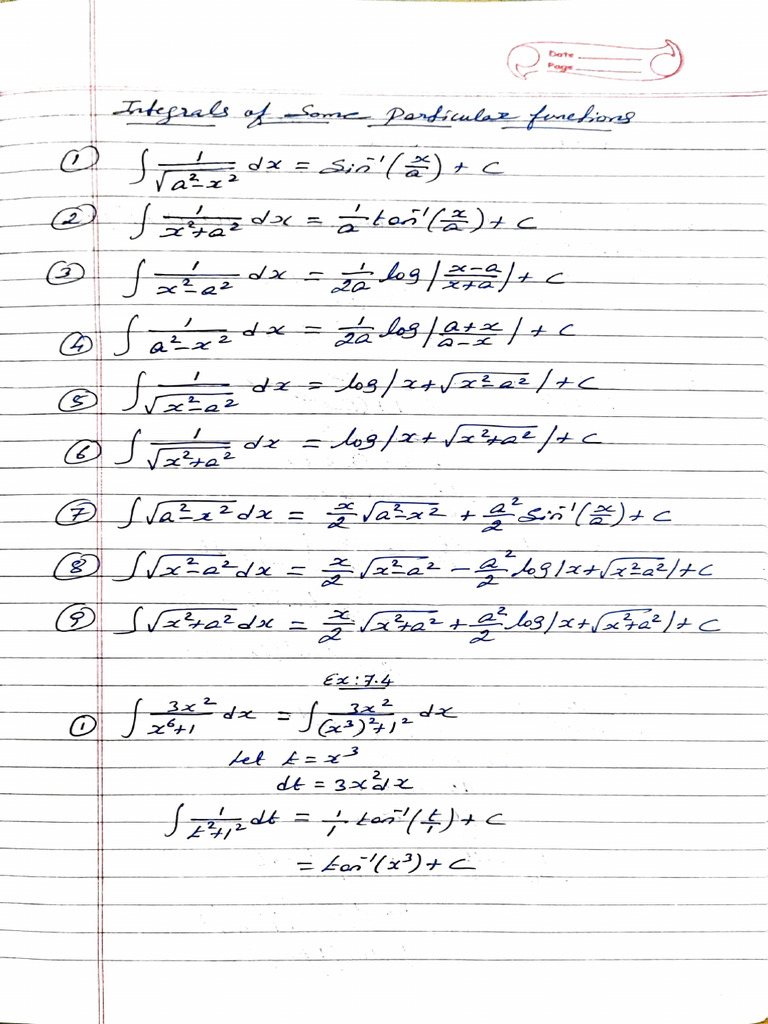 Date
Page
Integrals of Some Particular functions
① ∫ 1/√(a²-x²) dx = Sin⁻¹(x/a) + C
② ∫ 1/(x²+a²) dx = 1/a tan⁻¹(x/a) + C
③ ∫ 1/(x²-a²) dx = 1/2a log|(x-a)/(x+a)| + C
④ ∫ 1/(a²-x²) dx = 1/2a log|(a+x)/(a-x)| + C
⑤ ∫ 1/√(x²-a²) dx = log|x+√(x²-a²)| + C
⑥ ∫ 1/√(x²+a²) dx = log|x+√(x²+a²)| + C
⑦ ∫√(a²-x²) dx = x/2 √(a²-x²) + a²/2 Sin⁻¹(x/a) + C
⑧ ∫√(x²-a²) dx = x/2 √(x²-a²) - a²/2 log|x+√(x²-a²)| + C
⑨ ∫√(x²+a²) dx = x/2 √(x²+a²) + a²/2 log|x+√(x²+a²)| + C
Ex: 7.4
① ∫ 3x²/(x⁶+1) dx = ∫ 3x²/((x³)²+1²) dx
Let t = x³
dt = 3x²dx
∫ 1/(t²+1²) dt = 1/1 tan⁻¹(t/1) + C
= tan⁻¹(x³) + C